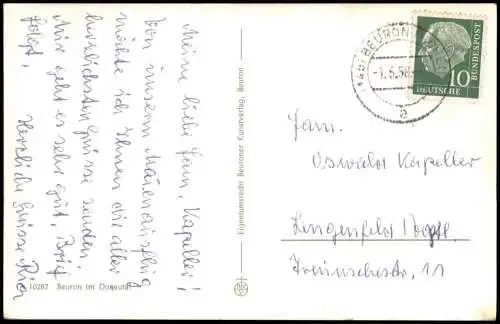 Meine liebe Fam. Kapeller!
Von unserm Maienausflug
möchte ich Ihnen die aller
herzlichsten Grüsse senden.
Mir geht es sehr gut. Brief
folgt! Herzliche Grüsse
10287 Beuron im Donautal
Eigentumsrecht Beuroner Kunstverlag, Beuron
BEURON
-1.5.58
a
10
DEUTSCHE
BUNDESPOST
Fam.
Oswald Kapeller
Lengenfeld Vogtl.
11